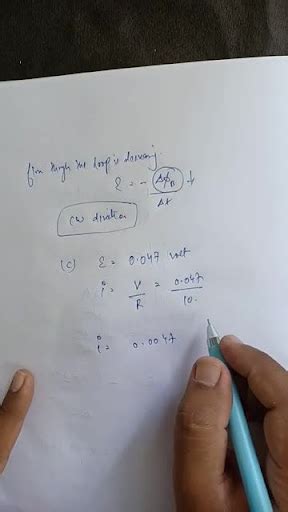 flux through the loop is decreasing
ε = - Δϕ_B / Δt ↓
CW direction
(c) ε = 0.047 volt
i = V/R = 0.047/10.
i = 0.0047